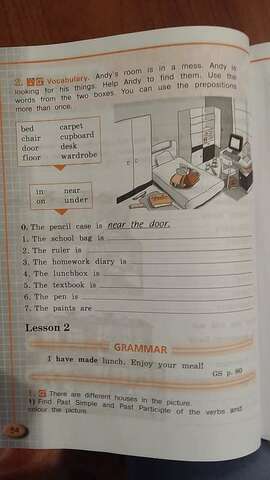 2. Vocabulary. Andy's room is in a mess. Andy is
looking for his things. Help Andy to find them. Use the
words from the two boxes. You can use the prepositions
more than once.
bed carpet
chair cupboard
door desk
floor wardrobe
in near
on under
0. The pencil case is near the door.
1. The school bag is
2. The ruler is
3. The homework diary is
4. The lunchbox is
5. The textbook is
6. The pen is
7. The paints are
Lesson 2
GRAMMAR
I have made lunch. Enjoy your meal!
GS p. 80
1. G There are different houses in the picture.
1) Find Past Simple and Past Participle of the verbs and
colour the picture.
54